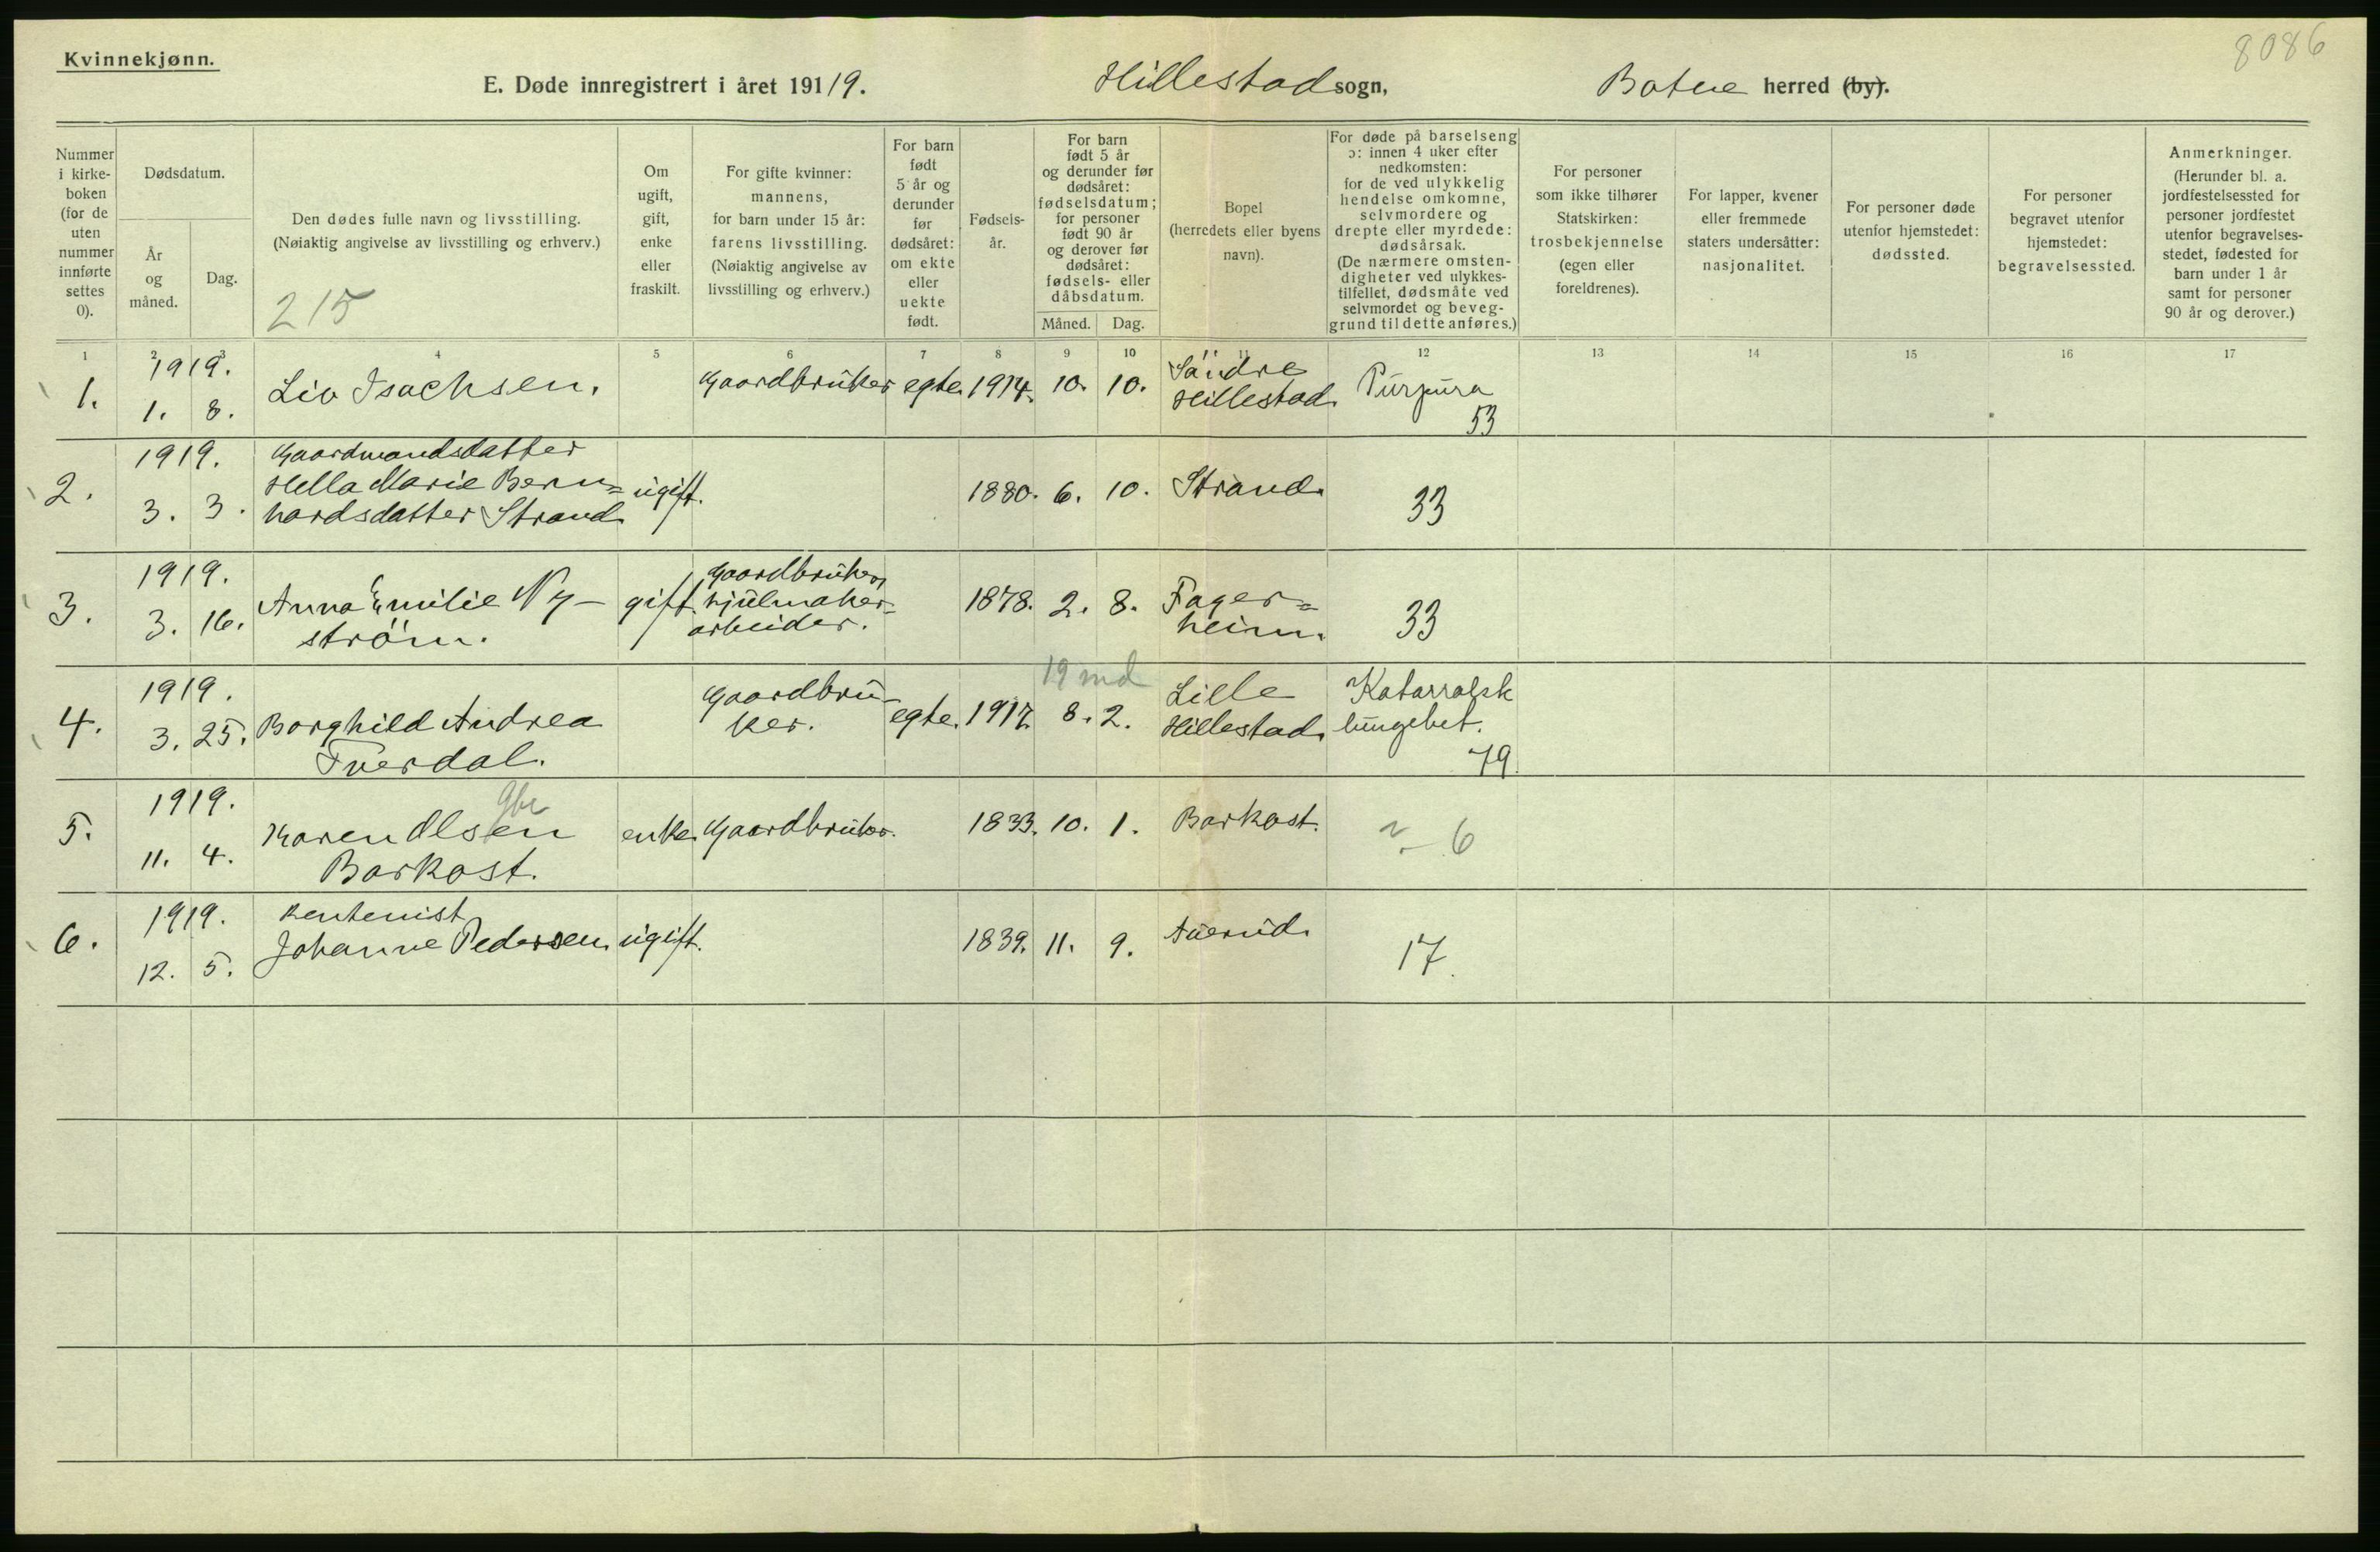 8086
Kvinnekjønn.
E. Døde innregistrert i året 19119. Hillestad sogn, Botne herred (by).
Nummer
i kirke-
boken
(for de
uten
nummer
innførte
settes
0).
Dødsdatum.
År
og
måned.
Dag.
Den dødes fulle navn og livsstilling.
(Nøiaktig angivelse av livsstilling og erhverv.)
215
Om
ugift,
gift,
enke
eller
fraskilt.
For gifte kvinner:
mannens,
for barn under 15 år:
farens livsstilling.
(Nøiaktig angivelse av
livsstilling og erhverv.)
For barn
født
5 år og
derunder
før
dødsåret:
om ekte
eller
uekte
født.
Fødsels-
år.
For barn
født 5 år
og derunder før
dødsåret:
fødselsdatum;
for personer
født 90 år
og derover før
dødsåret:
fødsels- eller
dåbsdatum.
Måned. Dag.
Bopel
(herredets eller byens
navn).
For døde på barselseng
ɔ: innen 4 uker efter
nedkomsten:
for de ved ulykkelig
hendelse omkomne,
selvmordere og
drepte eller myrdede:
dødsårsak.
(De nærmere omsten-
digheter ved ulykkes-
tilfellet, dødsmåte ved
selvmordet og beveg-
grund til dette anføres.)
For personer
som ikke tilhører
Statskirken:
trosbekjennelse
(egen eller
foreldrenes).
For lapper, kvener
eller fremmede
staters undersåtter:
nasjonalitet.
For personer døde
utenfor hjemstedet:
dødssted.
For personer
begravet utenfor
hjemstedet:
begravelsessted.
Anmerkninger.
(Herunder bl. a.
jordfestelsessted for
personer jordfestet
utenfor begravelses-
stedet, fødested for
barn under 1 år
samt for personer
90 år og derover.)
1 2 3 4 5 6 7 8 9 10 11 12 13 14 15 16 17
1.
1919.
1. 8.
Liv Isachsen.
Gaardbruker
egte.
1914. 10. 10.
Söndre
Hillestad.
Purpura
53
2.
1919.
3. 3.
Gaardmandsdatter
Hella Marie Bern=
hardsdatter Strand.
ugift.
1880. 6. 10.
Strand.
33
3.
1919.
3. 16.
Anna Emilie Ny-
ström.
gift.
Gaardbruker,
hjulmaker=
arbeider.
1878. 2. 8.
Fager=
heim.
33
4.
1919.
3. 25.
Borghild Andrea
Tverdal.
Gaardbru-
ker.
egte.
19 md
1917 8. 2.
Lille
Hillestad.
Katarralsk
lungebet.
79.
5.
1919.
11. 4.
gbr
Karen Olsen
Barkost.
enke.
Gaardbruker.
1833. 10. 1.
Barkost.
6
6.
1919.
12. 5.
Rentenist
Johanne Pedersen.
ugift.
1839. 11. 9.
Auerud.
17.